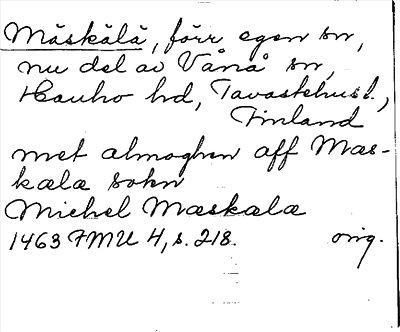 Mäskälä, förr egen sn,
nu del av Vånå sn,
Hauho hd, Tavastehusl.,
Finland
met almoghen aff Mæs-
kælæ sokn
Michel Mæskælæ
1463 FMU 4, s. 218. orig.